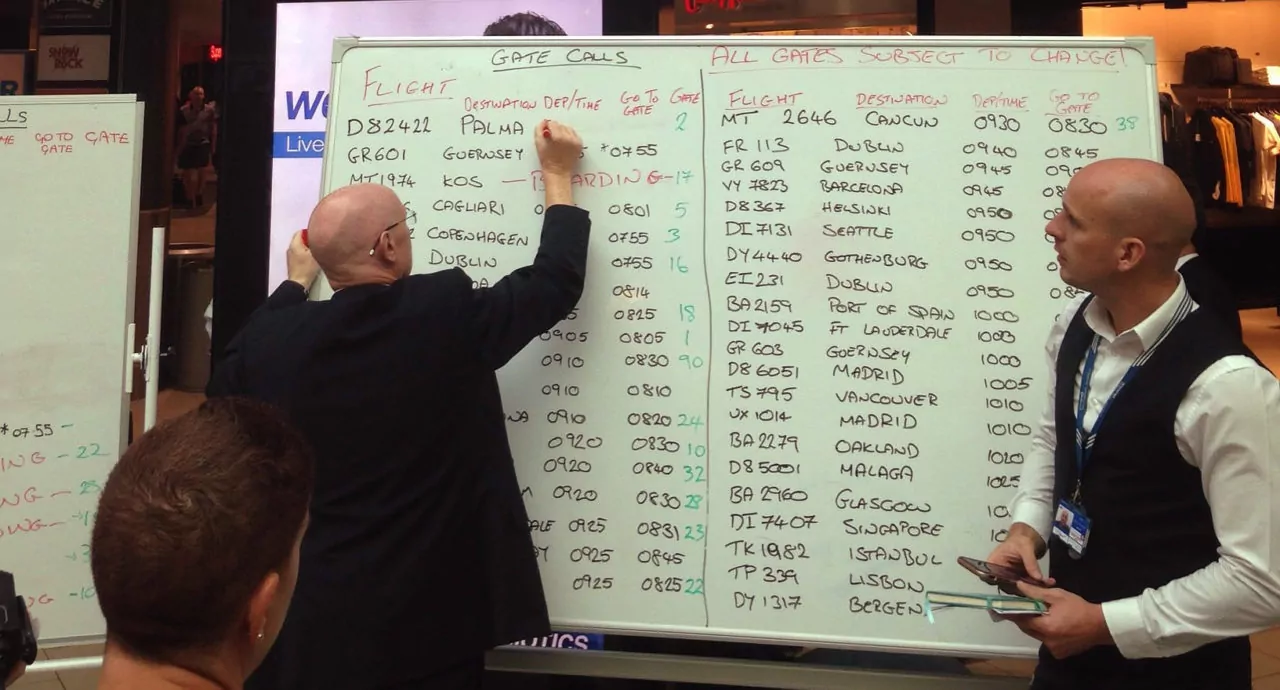 SNOW ROCK
GATE CALLS
ALL GATES SUBJECT TO CHANGE!
FLIGHT DESTINATION DEP/TIME GO TO GATE GATE
D82422 PALMA 2
GR601 GUERNSEY *0755
MT1974 KOS — BOARDING - 17
CAGLIARI 0801 5
COPENHAGEN 0755 3
DUBLIN 0755 16
0814
0825 18
0905 0805 1
0910 0830 90
0910 0810
0910 0820 24
0920 0830 10
0920 0840 32
0920 0830 28
0925 0831 23
0925 0845
0925 0825 22
FLIGHT DESTINATION DEP/TIME GO TO GATE
MT 2646 CANCUN 0930 0830 38
FR 113 DUBLIN 0940 0845
GR 609 GUERNSEY 0945
VY 7823 BARCELONA 0945
D8 367 HELSINKI 0950
DI 7131 SEATTLE 0950
DY 4440 GOTHENBURG 0950
EI 231 DUBLIN 0950
BA 2159 PORT OF SPAIN 1000
DI 7045 FT LAUDERDALE 1000
GR 603 GUERNSEY 1000
D8 6051 MADRID 1005
TS 795 VANCOUVER 1010
UX 1014 MADRID 1010
BA 2279 OAKLAND 1020
D8 5001 MALAGA 1025
BA 2960 GLASGOW
DI 7407 SINGAPORE
TK 1982 ISTANBUL
TP 339 LISBON
DY 1317 BERGEN
GO TO GATE GATE
*0755 -
- 22
Live